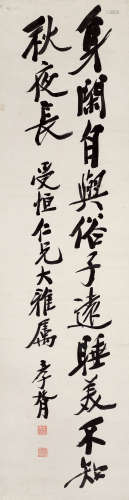 身閑自與俗子遠睡美不知
秋夜長
曼恒仁兄大雅屬 孝胥